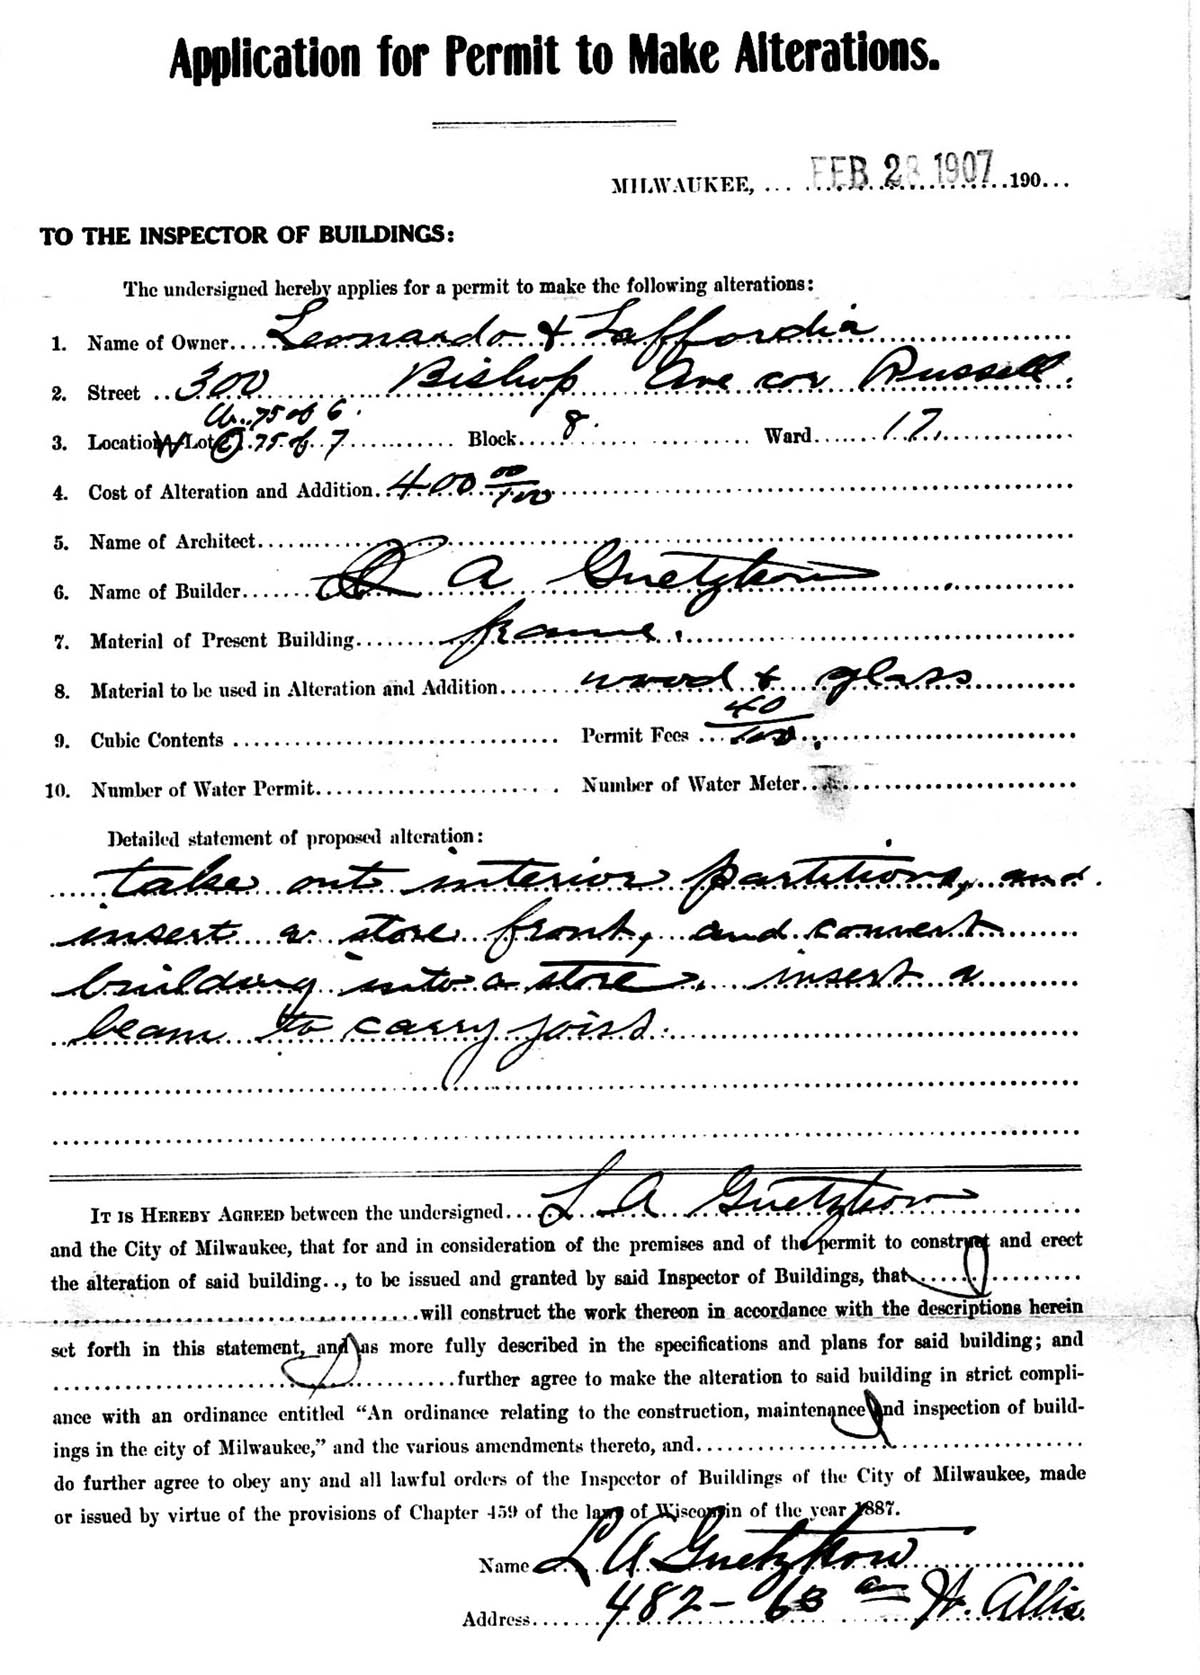 Application for Permit to Make Alterations.
MILWAUKEE, ... FEB 28 1907 190...
TO THE INSPECTOR OF BUILDINGS:
The undersigned hereby applies for a permit to make the following alterations:
1. Name of Owner.... Leonardo & Laffordia
2. Street .. 300 Bishop Ave cor Russell.
.75 of 6.
3. Location Lot .75 of 7 Block 8 Ward 17.
4. Cost of Alteration and Addition. 400 00/100
5. Name of Architect
6. Name of Builder L A Guetzkow
7. Material of Present Building frame.
8. Material to be used in Alteration and Addition wood & glass
9. Cubic Contents Permit Fees 40/100.
10. Number of Water Permit Number of Water Meter
Detailed statement of proposed alteration:
take out interior partitions, and
insert a store front, and convert
building into a store. insert a
beam to carry joist.
IT IS HEREBY AGREED between the undersigned L A Guetzkow
and the City of Milwaukee, that for and in consideration of the premises and of the permit to construct and erect
the alteration of said building.., to be issued and granted by said Inspector of Buildings, that
will construct the work thereon in accordance with the descriptions herein
set forth in this statement, and as more fully described in the specifications and plans for said building; and
further agree to make the alteration to said building in strict compli-
ance with an ordinance entitled “An ordinance relating to the construction, maintenance and inspection of build-
ings in the city of Milwaukee,” and the various amendments thereto, and
do further agree to obey any and all lawful orders of the Inspector of Buildings of the City of Milwaukee, made
or issued by virtue of the provisions of Chapter 459 of the laws of Wisconsin of the year 1887.
Name L A Guetzkow
Address 482 - 63 W. Allis